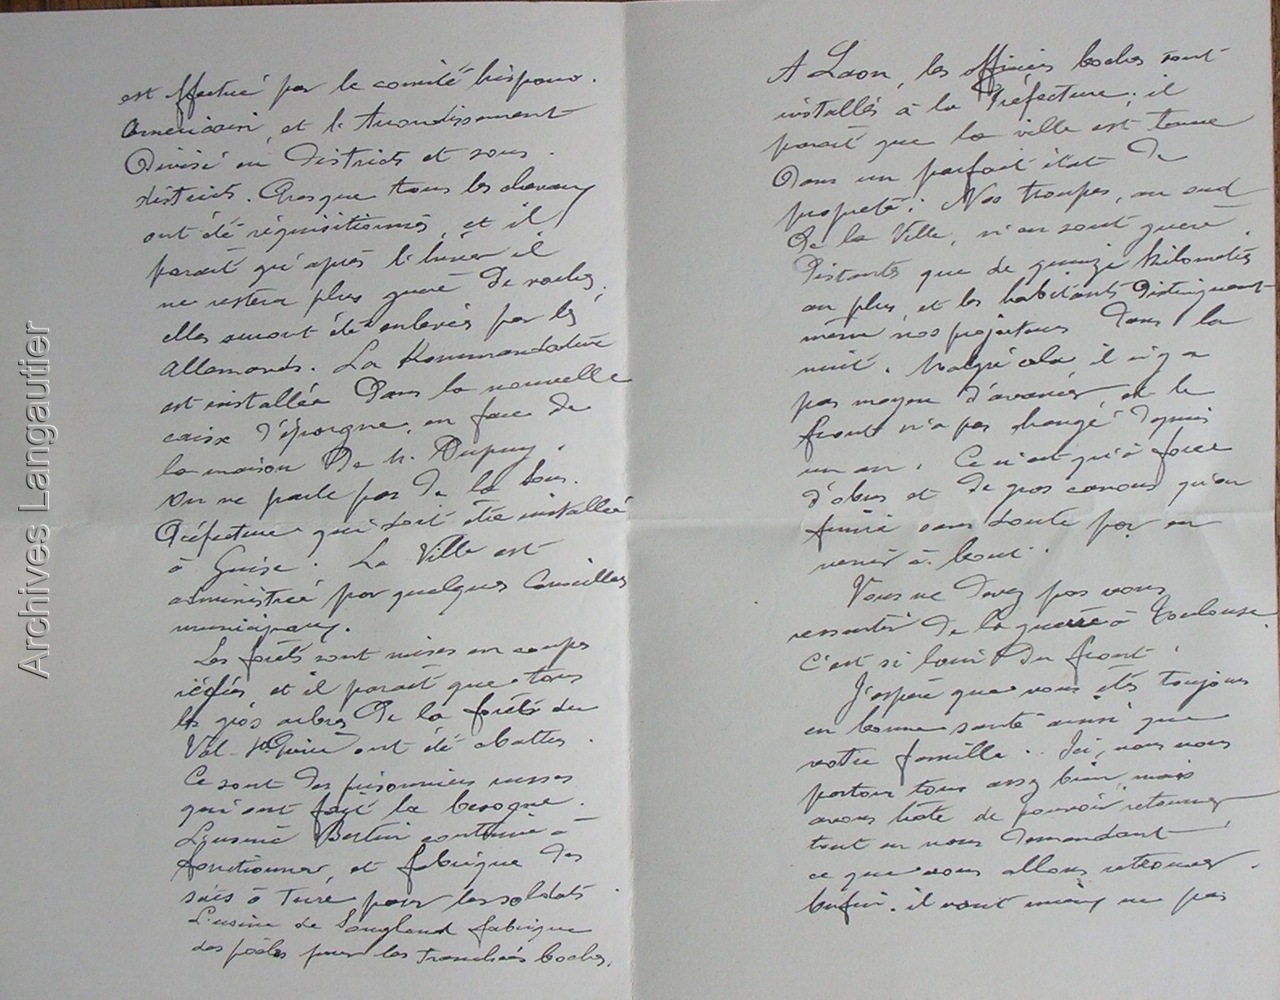 est effectué par le comité hispano.
américain, et l'arrondissement
divisé en districts et sous.
districts. Presque tous les chevaux
ont été réquisitionnés, et il
parait qu'après l'hiver il
ne restera plus guère de vaches.
elles auront été enlevées par les
allemands. La Kommandature
est installée dans la nouvelle
caisse d'épargne, en face de
la maison de M. Dupuy.
On ne parle pas de la Sous.
Préfecture qui doit être installée
à Guise. La Ville est
administrée par quelques Conseillers
municipaux.
Les forêts sont mises en coupes
réglées, et il parait que tous
les gros arbres de la forêt du
Val-St Pierre ont été abattus.
Ce sont des prisonniers russes
qui ont fait la besogne.
L'usine Bertin continue à
fonctionner, et fabrique des
sacs à terre pour les soldats
L'usine de Sougland fabrique
des poêles pour les tranchées boches.
A Laon, les officiers boches sont
installés à la Préfecture; il
parait que la ville est tenue
dans un parfait état de
propreté. Nos troupes, au sud
de la Ville, n'en sont guère
distantes que de quinze kilomètres
au plus, et les habitants distinguent
même nos projecteurs dans la
nuit. Malgré cela il n'y a
pas moyen d'avancer et le
front n'a pas changé depuis
un an. Ce n'est qu'à force
d'obus et de gros canons qu'on
finira sans doute par en
venir à bout.
Vous ne devez pas vous
ressentir de la guerre à Toulouse.
C'est si loin du front!
J'espère que vous êtes toujours
en bonne santé ainsi que
votre famille. Ici, nous nous
portons tous assez bien, mais
avons hâte de pouvoir retourner
tout en nous demandant
ce que nous allons retrouver.
Enfin, il vaut mieux ne pas
Archives Langautier